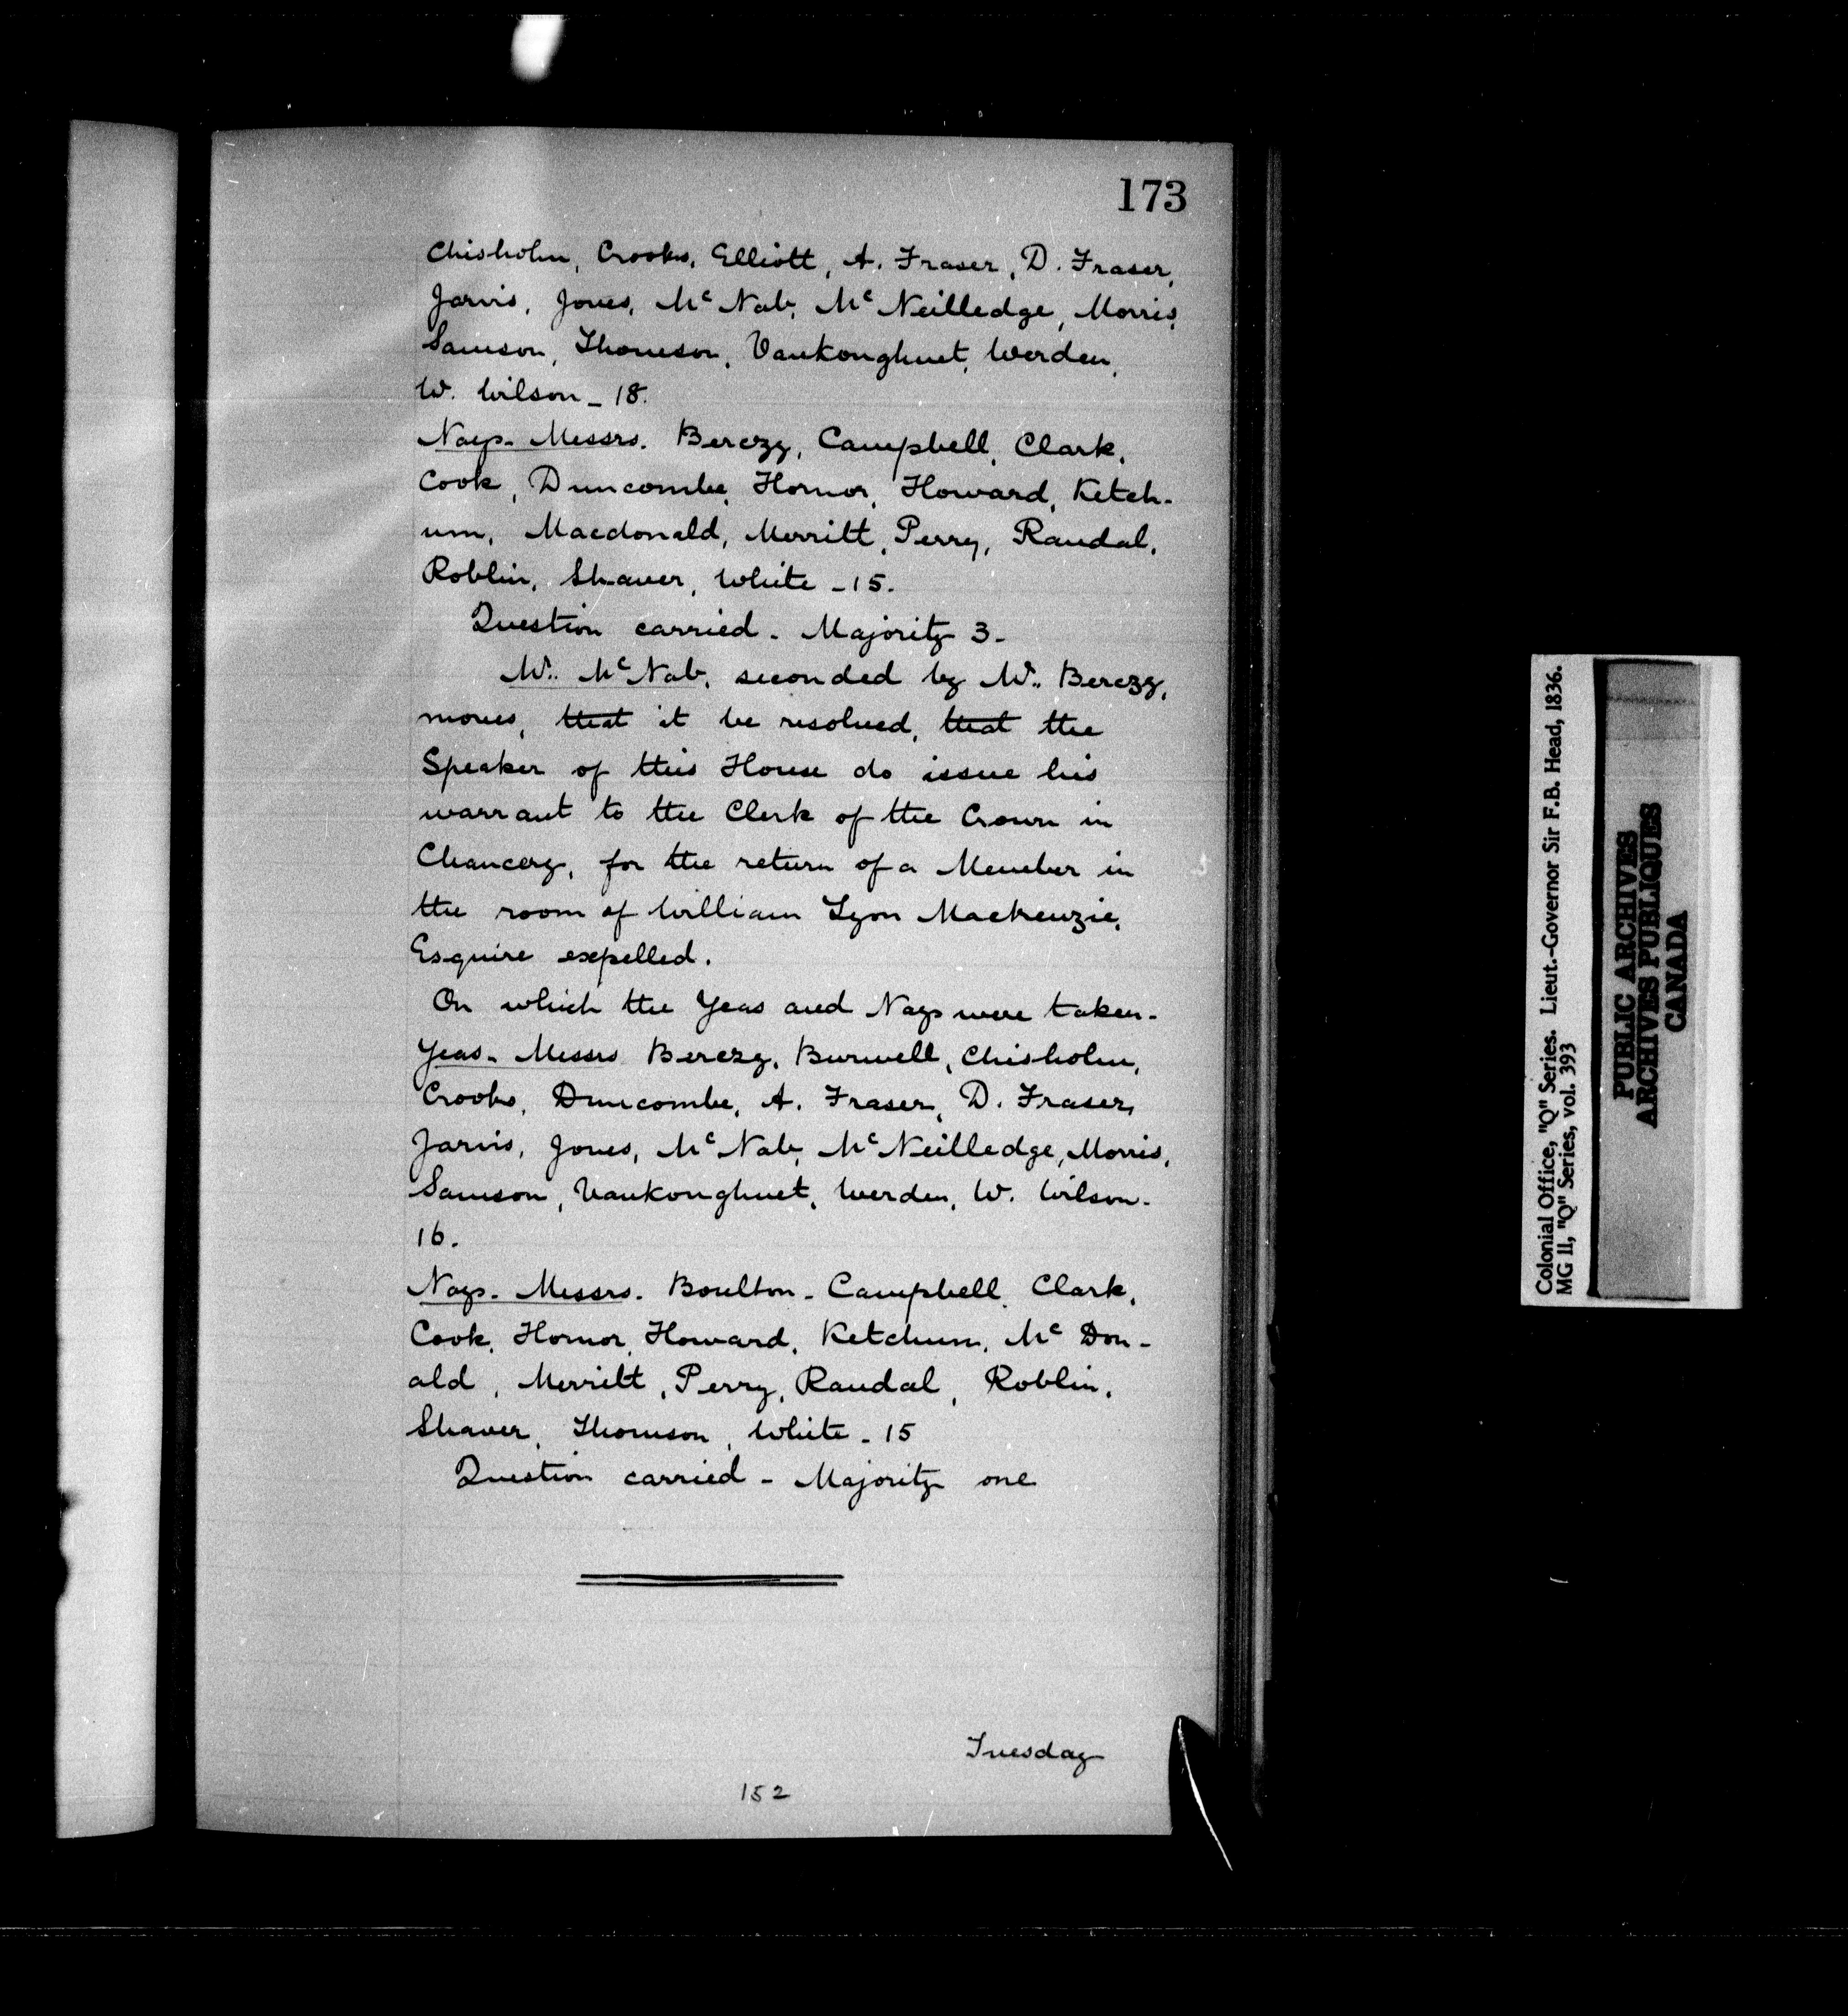 173
Chisholm, Crooks, Elliott, A. Fraser, D. Fraser,
Jarvis, Jones, McNab, McNeilledge, Morris,
Samson, Thomson, Vankoughnet, Werden,
W. Wilson - 18.
Nays - Messrs. Berczy, Campbell, Clark,
Cook, Duncombe, Hornor, Howard, Ketch-
um, Macdonald, Merritt, Perry, Randal,
Roblin, Shaver, White - 15.
Question carried - Majority 3 -
Mr. McNab, seconded by Mr. Berczy,
moves, that it be resolved, that the
Speaker of this House do issue his
warrant to the Clerk of the Crown in
Chancery, for the return of a Member in
the room of William Lyon Mackenzie,
Esquire expelled.
On which the Yeas and Nays were taken -
Yeas - Messrs Berczy, Burwell, Chisholm,
Crooks, Duncombe, A. Fraser, D. Fraser,
Jarvis, Jones, McNab, McNeilledge, Morris,
Samson, Vankoughnet, Werden, W. Wilson -
16.
Nays - Messrs. Boulton - Campbell, Clark,
Cook, Hornor, Howard, Ketchum, McDon-
ald, Merritt, Perry, Randal, Roblin,
Shaver, Thomson, White - 15
Question carried - Majority one
Tuesday
152
Colonial Office, "Q" Series. Lieut.-Governor Sir F.B. Head, 1836.
MG 11, "Q" Series, vol. 393
PUBLIC ARCHIVES
ARCHIVES PUBLIQUES
CANADA